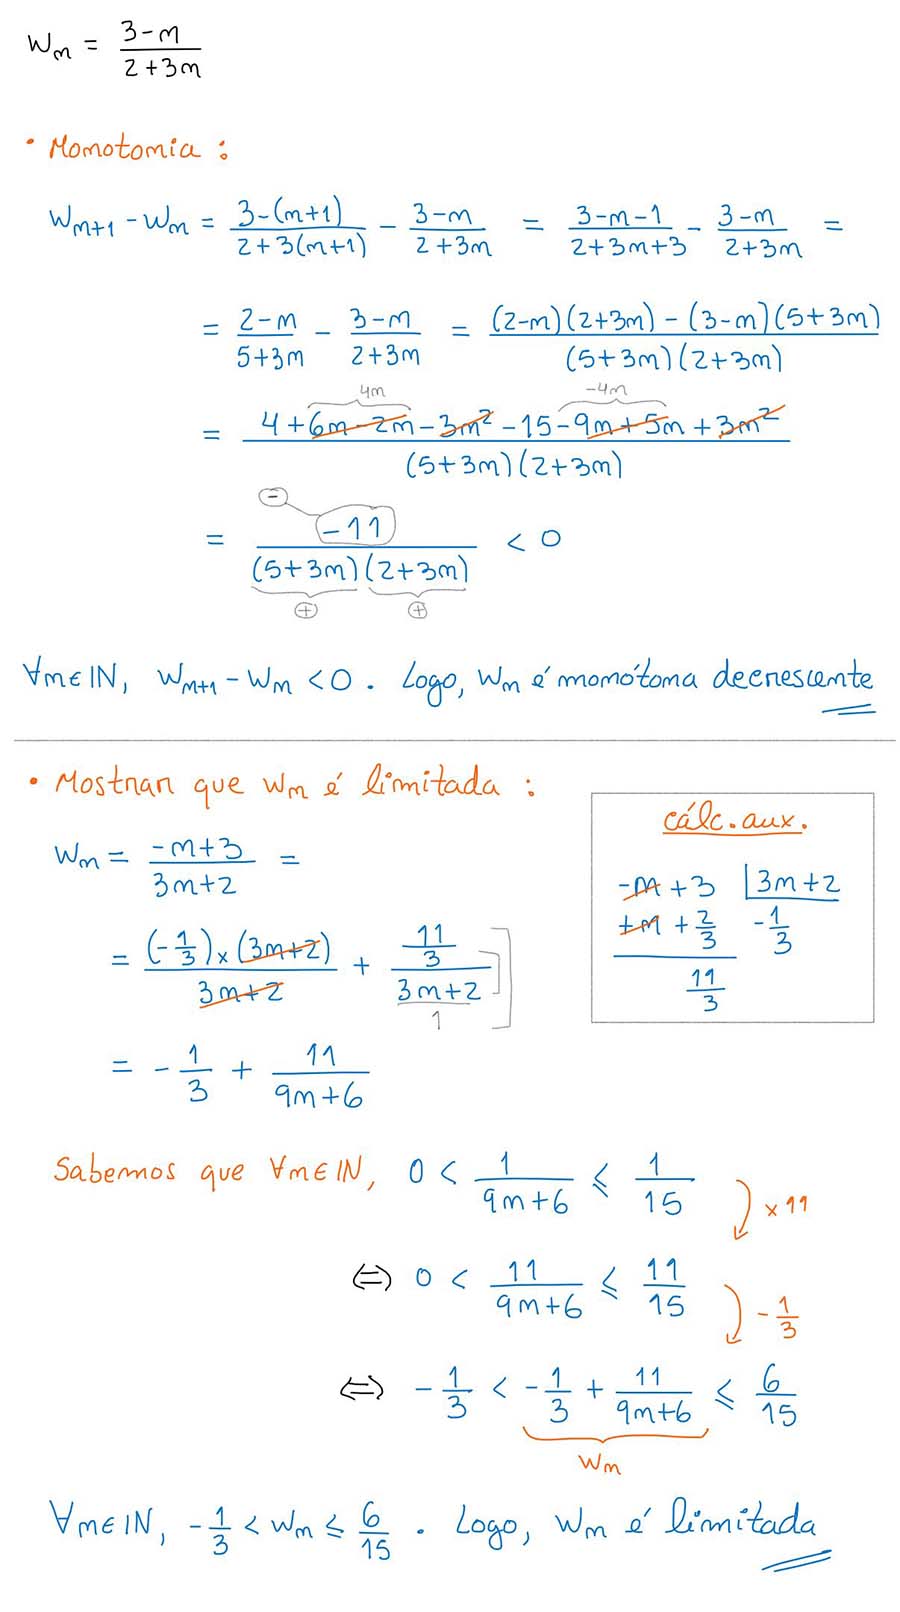 wₙ = (3-n)/(2+3n)
• Monotonia :
wₙ₊₁ - wₙ = (3-(n+1))/(2+3(n+1)) - (3-n)/(2+3n) = (3-n-1)/(2+3n+3) - (3-n)/(2+3n) =
= (2-n)/(5+3n) - (3-n)/(2+3n) = ((2-n)(2+3n) - (3-n)(5+3n))/((5+3n)(2+3n))
4n -4n
= (4+6n-2n-3n²-15-9n+5n+3n²)/((5+3n)(2+3n))
-
= -11/((5+3n)(2+3n)) < 0
+ +
∀n∈IN, wₙ₊₁ - wₙ < 0. Logo, wₙ é monótona decrescente
• Mostrar que wₙ é limitada :
wₙ = (-n+3)/(3n+2) =
= ((-1/3)×(3n+2))/(3n+2) + (11/3)/((3n+2)/1)
= -1/3 + 11/(9n+6)
cálc. aux.
-n+3 |3n+2
+n+2/3 -1/3
11/3
Sabemos que ∀n∈IN, 0 < 1/(9n+6) ≤ 1/15
×11
⇔ 0 < 11/(9n+6) ≤ 11/15
-1/3
⇔ -1/3 < -1/3 + 11/(9n+6) ≤ 6/15
wₙ
∀n∈IN, -1/3 < wₙ ≤ 6/15. Logo, wₙ é limitada